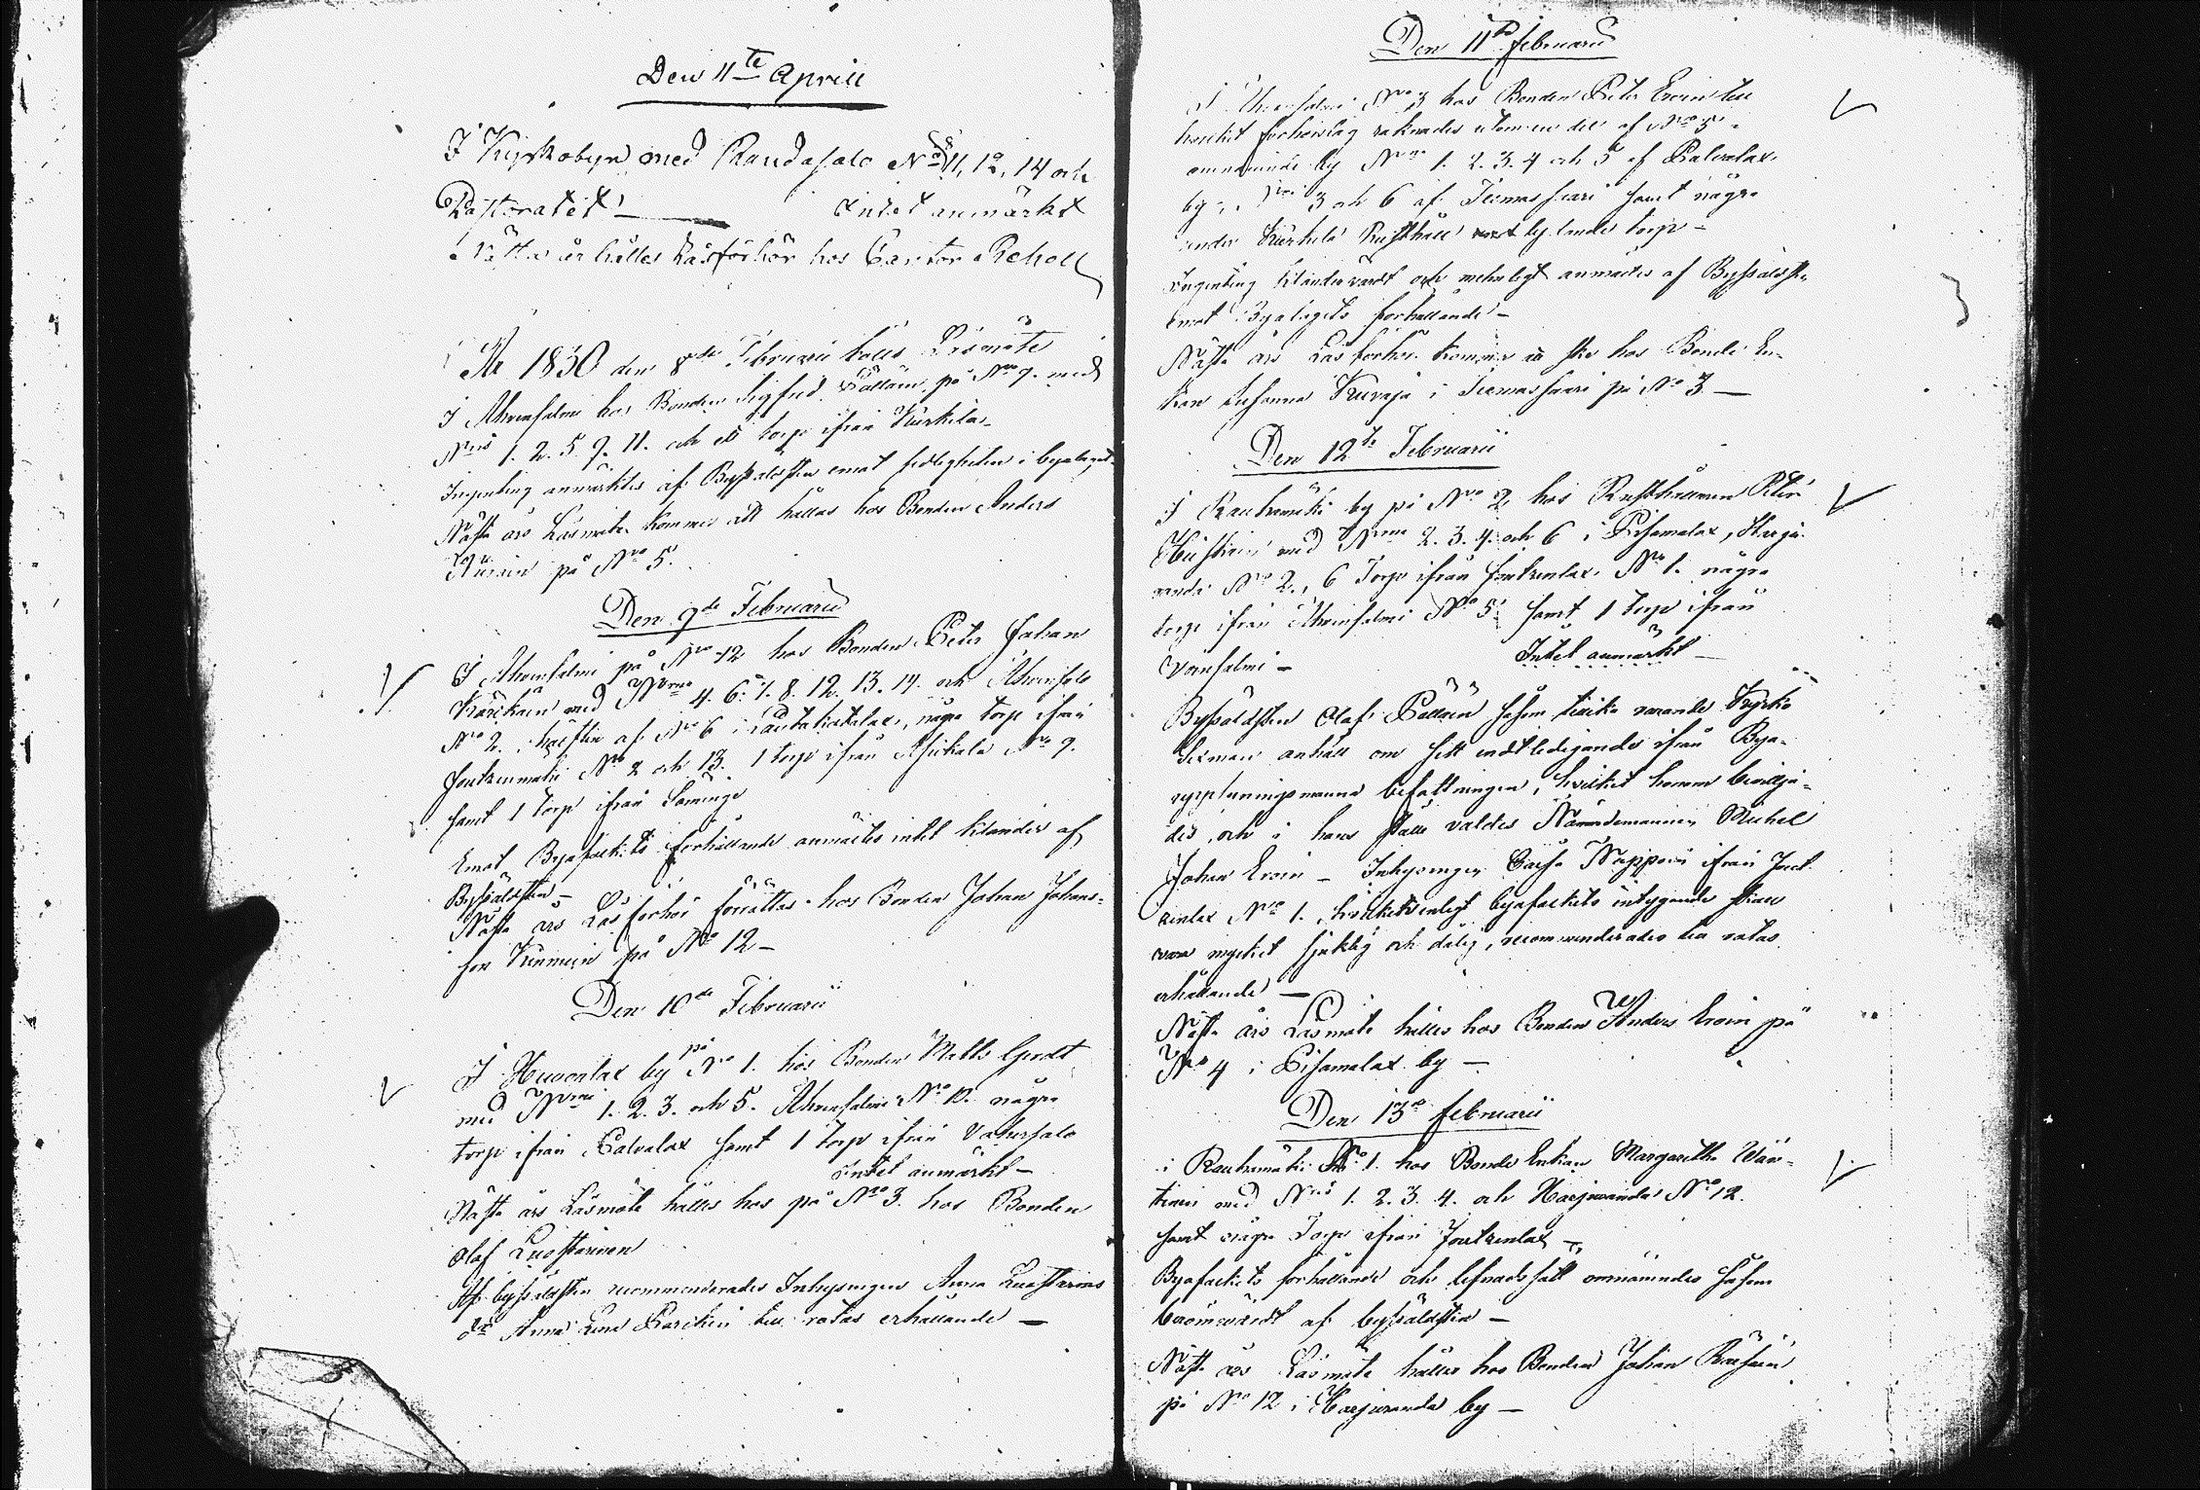 Den 11te Aprill
I Kyrkobyn med Randasalo Nro 8, 11, 12, 14 och
Pastoratet — Intet anmärkt
Nästa år hålles Läsförhör hos Cantor Reholl
År 1830 den 8de Februarii hölls Läsmöte
I Ahvensalmi hos Bonden Sigfrid Pöllänen på Nro 9. med
Nris 1. 2. 5. 9. 11. och ett torp ifrån Kurkila
Ingenting anmärktes af Byssåldsten emot sedligheten i byalaget
Nästa års Läsmöte kommer att hållas hos Bonden Anders
på Nro 5.
Den 9de Februarii
I Ahvensalmi på Nro 12 hos Bonden Peter Johan
Kärkäin med Nrne 4. 6. 7. 8. 12. 13. 14. och Ahvensalo
Nro 2. hälften af Nro 6 i Rautakatalax, några torp ifrån
Joutzenmäki Nro 2 och 13. 1 torp ifrån Asikala Nro 9.
samt 1 torp ifrån Säminge
Emot Byafolkets förhållande anmältes intet klander af
Byssåldsten —
Nästa års Läsförhör förrättas hos Bonden Johan Johans-
son Kinnuin på Nro 12 —
Den 10de Februarii
I Huvonlax by på Nro 1. hos Bonden Matts Gerdt
med Nrne 1. 2. 3. och 5. Ahvensalmi Nro 10. några
torp ifrån Palvalax samt 1 torp ifrån Vaturjalo
Intet anmärkt —
Nästa års Läsmöte hålles hos på Nro 3. hos Bonden
Olaf Luostarinen
Af byssåldsten recommenderades Inhysingen Anna Luostarinen
och Anna Lena Karckin till rotas erhållande —
Den 11te Februarii
I Ahvensalmi Nro 3 hos Bonden Peter Eroin till
hvilket förhörslag räknades utom en del af Nro 5
omnämnde by Nrne 1. 2. 3. 4 och 5 af Palvalax
by, Nro 3 och 6 af Tiemassaari samt några
under Kurkela Rusthåll lydande torp —
Ingenting klandervärdt och menligt anmältes af Byssåldsten
emot Byalagets förhållande —
Nästa års Läsförhör kommer att ske hos Bonde En-
kan Susanna Kuvaja i Tiemassaari på Nro 3 —
Den 12te Februarii
I Rauhamäki by på Nro 2 hos Rusthållaren Peter
med Nrne 2. 3. 4. och 6 i Pisamalax, Harju-
randa Nro 2, 6 Torp ifrån Joutzenlax Nro 1. några
torp ifrån Ahvensalmi Nro 5. samt 1 torp ifrån
Vornsalmi — Intet anmärkt —
Byssåldsten Olaf Pöllänen såsom tillika varande Kyrko
Sexman anhöll om sitt entledigande ifrån Bya-
uppsyningsmanna befattningen, hvilket honom bevilja-
des, och i hans ställe valdes Nämndemannen Michel
Johan Eroin — Inhysingen Caisa Nuppoin ifrån Jout-
zenlax Nro 1. hvilken enligt byafolkets intygande skall
vara mycket sjuklig och dålig, recommenderades till rotas
erhållande —
Nästa års Läsmöte hålles hos Bonden Anders Eroin på
Nro 4 i Pisamalax by —
Den 13de Februarii
i Rauhamäki Nro 1. hos Bonde Enkan Margaretha Wän-
tinen med Nris 1. 2. 3. 4. och Harjuranda Nro 12.
samt några Torp ifrån Joutzenlax —
Byafolkets förhållande och lefnadssätt omnämndes såsom
berömvärdt af byssåldsten —
Nästa års Läsmöte hålles hos Bonden Johan Räsänen
på Nro 12 i Harjuranda by —